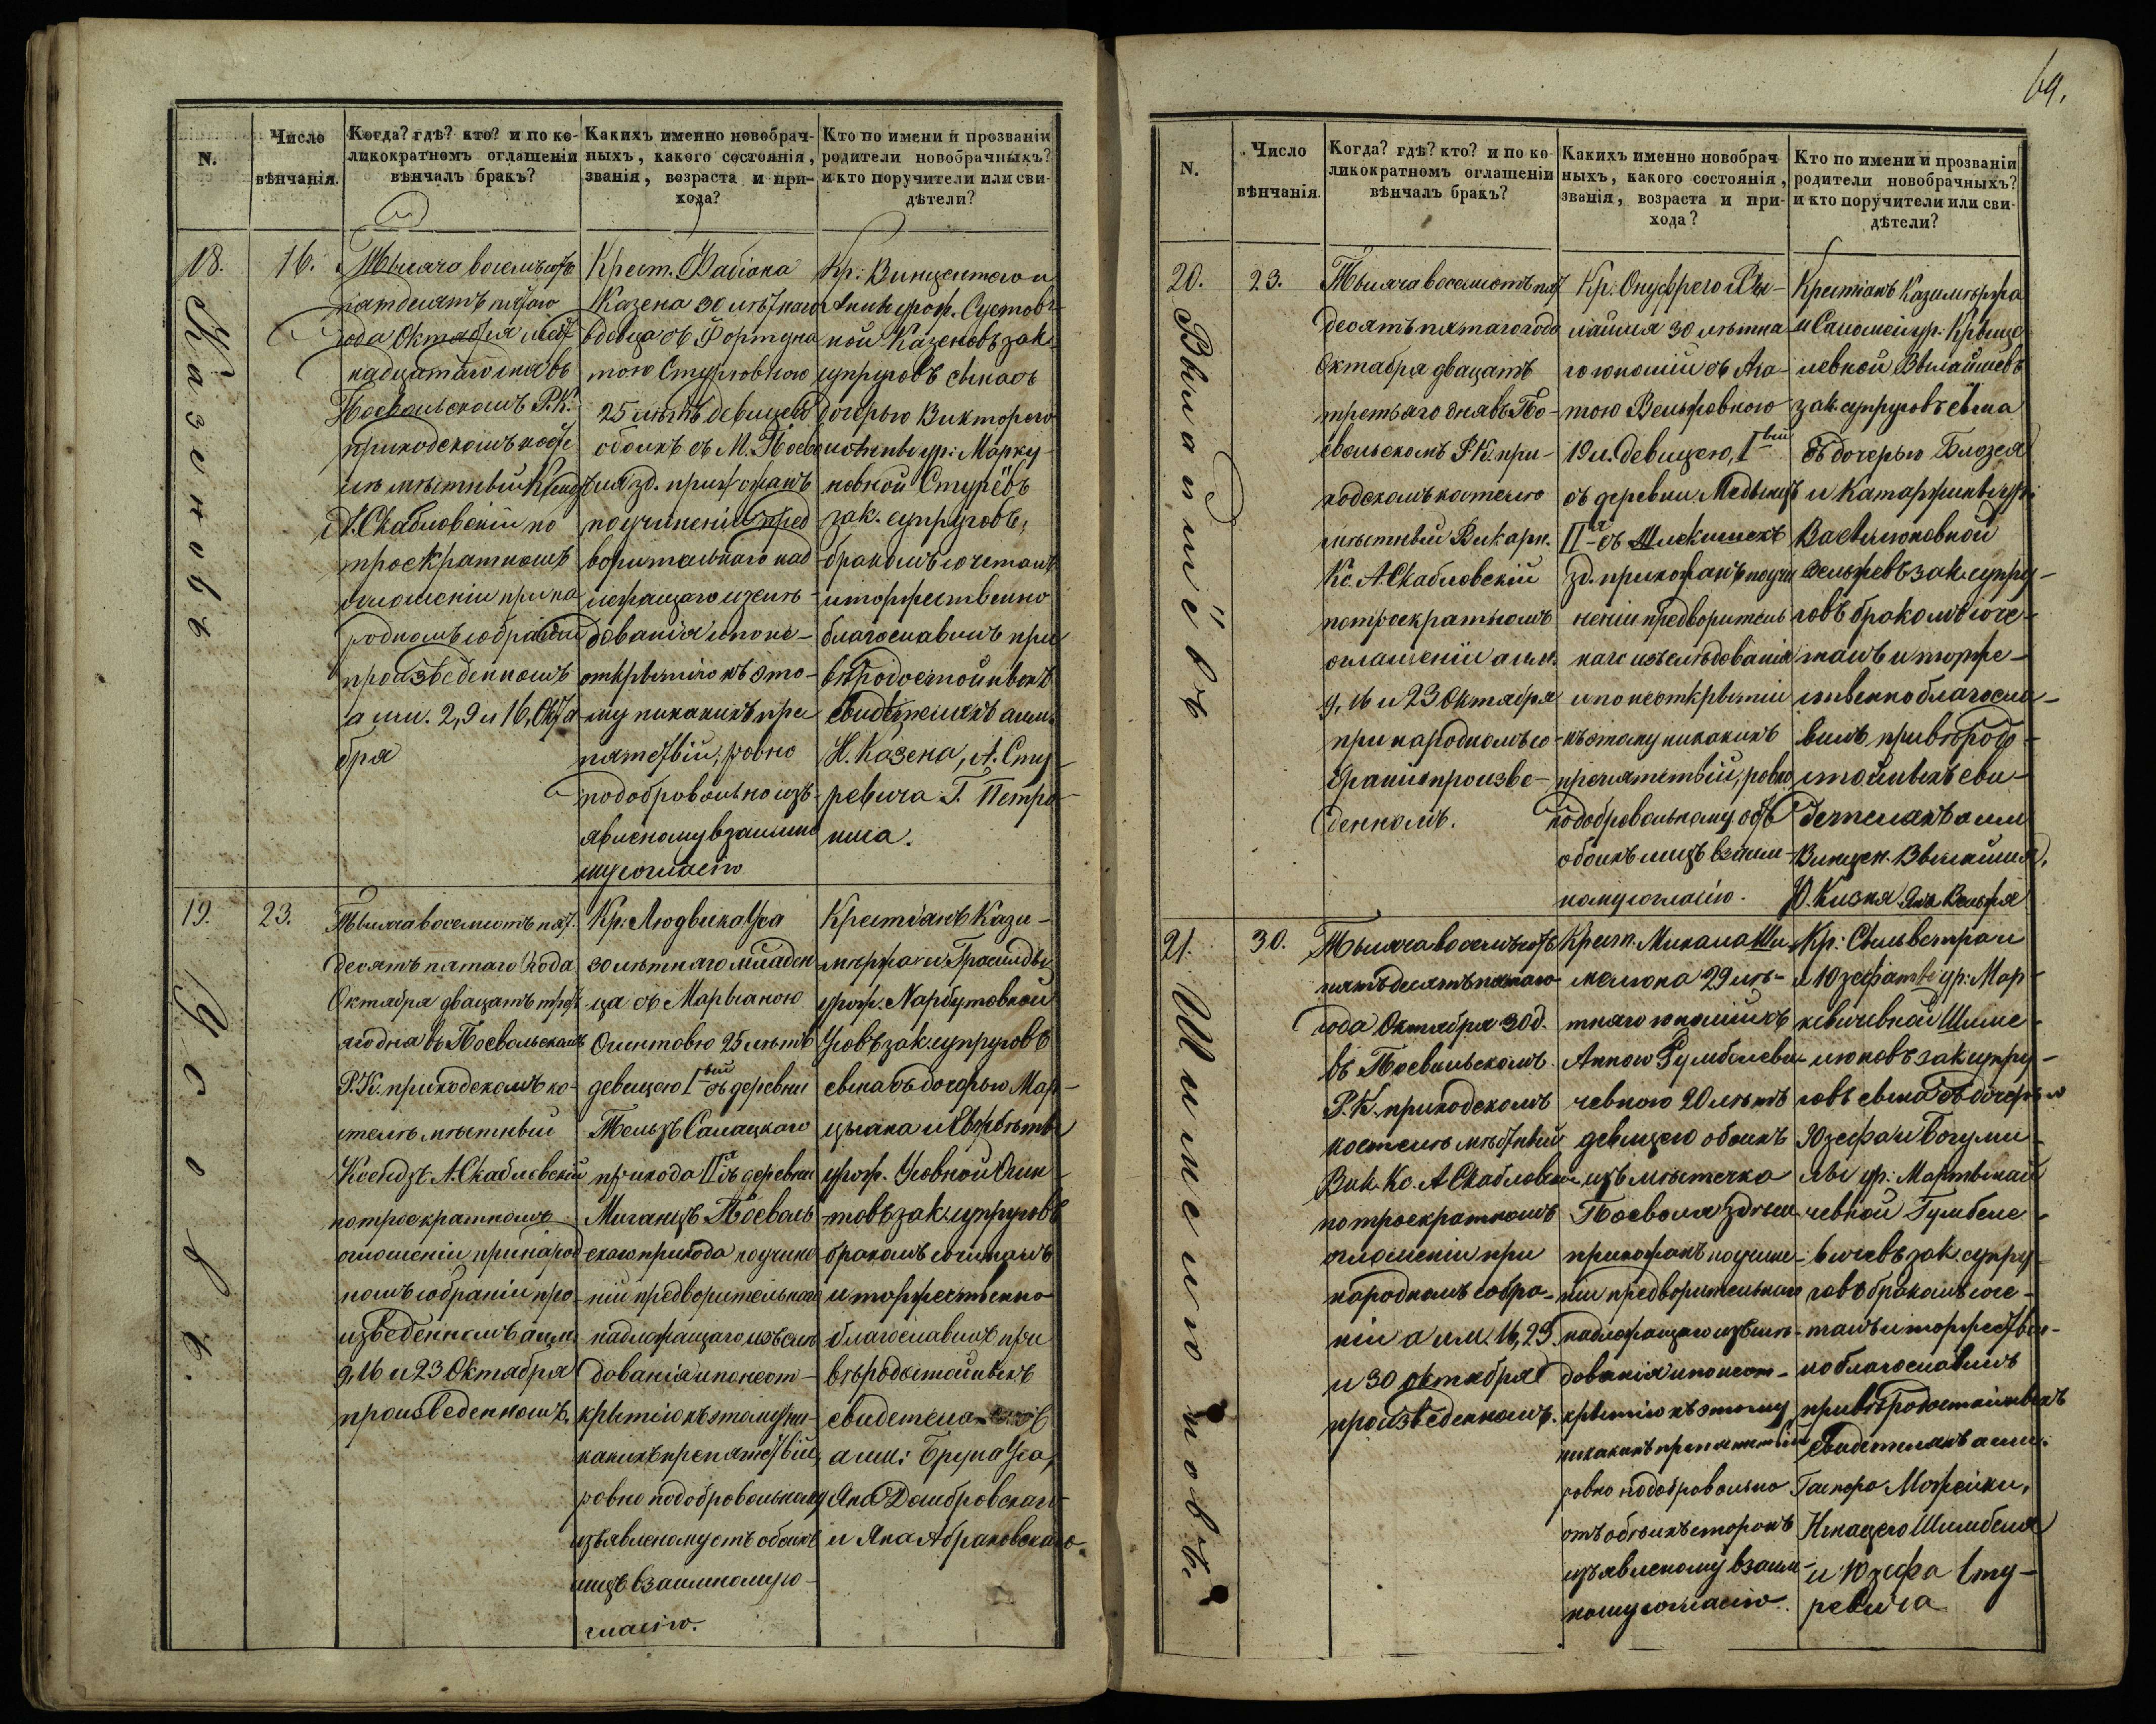 69.
N.
Число
вѣнчанія.
Когда? гдѣ? кто? и по ко-
ликократномъ оглашеніи
вѣнчалъ бракъ?
Какихъ именно новобрач-
ныхъ, какого состоянія,
званія, возраста и при-
хода?
Кто по имени и прозванію
родители новобрачныхъ?
и кто поручители или сви-
дѣтели?
18.
Казеновъ
16.
Тысяча восемьсотъ
пятдесятъ пятаго
года Октября шест
надцатаго дня въ
Посвольскомъ Р.К.
приходскомъ косте
лѣ мѣстный Ксендз
А. Скабловскій по
троекратномъ
оглашеніи при на
родномъ собраніи
произведенномъ
а им. 2, 9 и 16, Октя
бря
Крест. Фабіана
Казена 30 лѣтняго
вдовца съ Фортуна
тою Стурговною
25 лѣтъ девицею
обоихъ съ М. Посво
ля зд. прихожанъ
по учиненіи пред
ворительнаго над
лежащаго изслѣ-
дованія и по не-
открытію къ это-
му никакихъ пре
пятствій, ровно
по добровольно изъ
явленому взаимно
му согласію
Кр: Винцентего и
Анны урож.
ной Казеновъ зак.
супруговъ сына съ
дочерью Викторего
и ур: Марку-
новной
зак. супруговъ,
бракомъ сочеталъ
и торжественно
благославилъ при
вѣродостойныхъ
свидѣтеляхъ а им.
К. Казена, А. Сту-
ревича Г. Петра-
шка.
19.
Усовъ.
23.
Тысяча восемсотъ пят.
десятъ пятаго года
Октября двацатъ трет
яго дня въ Посвольскомъ
Р.К. приходскомъ ко-
стелѣ мѣстный
Ксендзъ А. Скабловскій
по троекратномъ
оглашеніи при народ
номъ собраніи про-
изведенномъ а им.
9, 16 и 23 Октября
произведенномъ.
Кр: Людвика Уса
30 лѣтняго младен
ца съ Марьяною
Олинтовю 25 лѣтъ
девицею Iвый съ деревни
Тельзъ Салацкаго
прихода IIя съ деревни
Миганцъ Посволь-
скаго прихода по учине
ніи предворительнаго
надлежащаго изслѣ
дованія и по неот-
крытію къ этому ни-
какихъ препятствій,
ровно по добровольному
изъявленому отъ обоихъ
лицъ взаимному со-
гласію.
Крестіанъ Кази-
мѣржа и Грасилды
урож. Нарбутовной
Усовъ зак супруговъ
сына съ дочерью Мар-
цыана и
урож. Усовной Олин-
товъ зак. супруговъ
бракомъ сочеталъ
и торжественно
благославилъ при
вѣродостойныхъ
свидетеля
а им: Бруна Уса,
Яна Домбровскаго
и Яна Абрановскаго.
N.
Число
вѣнчанія.
Когда? гдѣ? кто? и по ко-
ликократномъ оглашеніи
вѣнчалъ бракъ?
Какихъ именно новобрач-
ныхъ, какого состоянія,
званія, возраста и при-
хода?
Кто по имени и прозванію
родители новобрачныхъ?
и кто поручители или сви-
дѣтели?
20.
23.
Тысяча восемсотъ пят
десятъ пятаго года
Октября двацатъ
третьяго дня въ По-
свольскомъ Р.К. при-
ходскомъ костелѣ
мѣстный Викарн.
Кс. А Скабловскій
по троекратномъ
оглашеніи а им.
9, 16 и 23 Октября
при народномъ со-
браніи произве-
денномъ.
Кр. Онуфрего Вы-
лайшя 30 лѣтня
го юношій съ Ага-
тою Вельжовною
19 л. девицею, Iвый
съ деревни
IIя съ
зд. прихожанъ по учи
неніи предворитель
наго изслѣдованія
и по неоткрытіи
къ этому никакихъ
препятствій, ровно
по добровольному отъ
обоихъ лицъ взаим-
ному согласію.
Крестіанъ Казимѣржа
и Саломеи ур:
левной Вылайшевъ
зак. супруговъ сына
съ дочерью Блазея
и Катаржины ур:
Васылюновной
Вельжевъ зак супру-
говъ бракомъ соче-
талъ и торже-
ственно благосла-
вилъ при вѣродо-
стойныхъ сви-
детеляхъ а им
Винцен. Вылайшя,
Ю. Яна Вельжя
21.
30.
Тысяча восемьсотъ
пятьдесятъ пятаго
года Октября 30 д.
въ Посвольскомъ
Р.К. приходскомъ
костелѣ мѣстный
Вик. Кс. А Скабловскій
по троекратномъ
оглашеніи при
народномъ собра-
ніи а им. 16, 23.
и 30 октября
произведенномъ.
Крест. Михала Ши-
мелюна 29 лѣ-
тняго юношій съ
Анною Гумбелеви-
чевною 20 лѣтъ
девицею обоихъ
изъ мѣстечка
Посволя здѣшн.
прихожанъ по учине-
ніи предворительнаго
надлежащаго изслѣ-
дованія и по неот-
крытію къ этому
никакихъ препятствій
ровно по добровольно
отъ обѣихъ сторонъ
изъявленому взаим-
ному согласію.
Кр: Сильвестра и
и Юзефаты ур: Мар-
кевичевной Шиме-
люновъ зак супру-
говъ сына съ дочерью
Юзефа и Богуми-
лы ур: Мартынай-
чевной Гумбеле-
вичевъ зак. супру-
говъ бракомъ соче-
талъ и торжествен-
но благославилъ
при вѣродостойныхъ
свидетеляхъ а им.
Гаспора Можейки,
Игнацего Шимбеля
и Юзефа Сту-
ревича